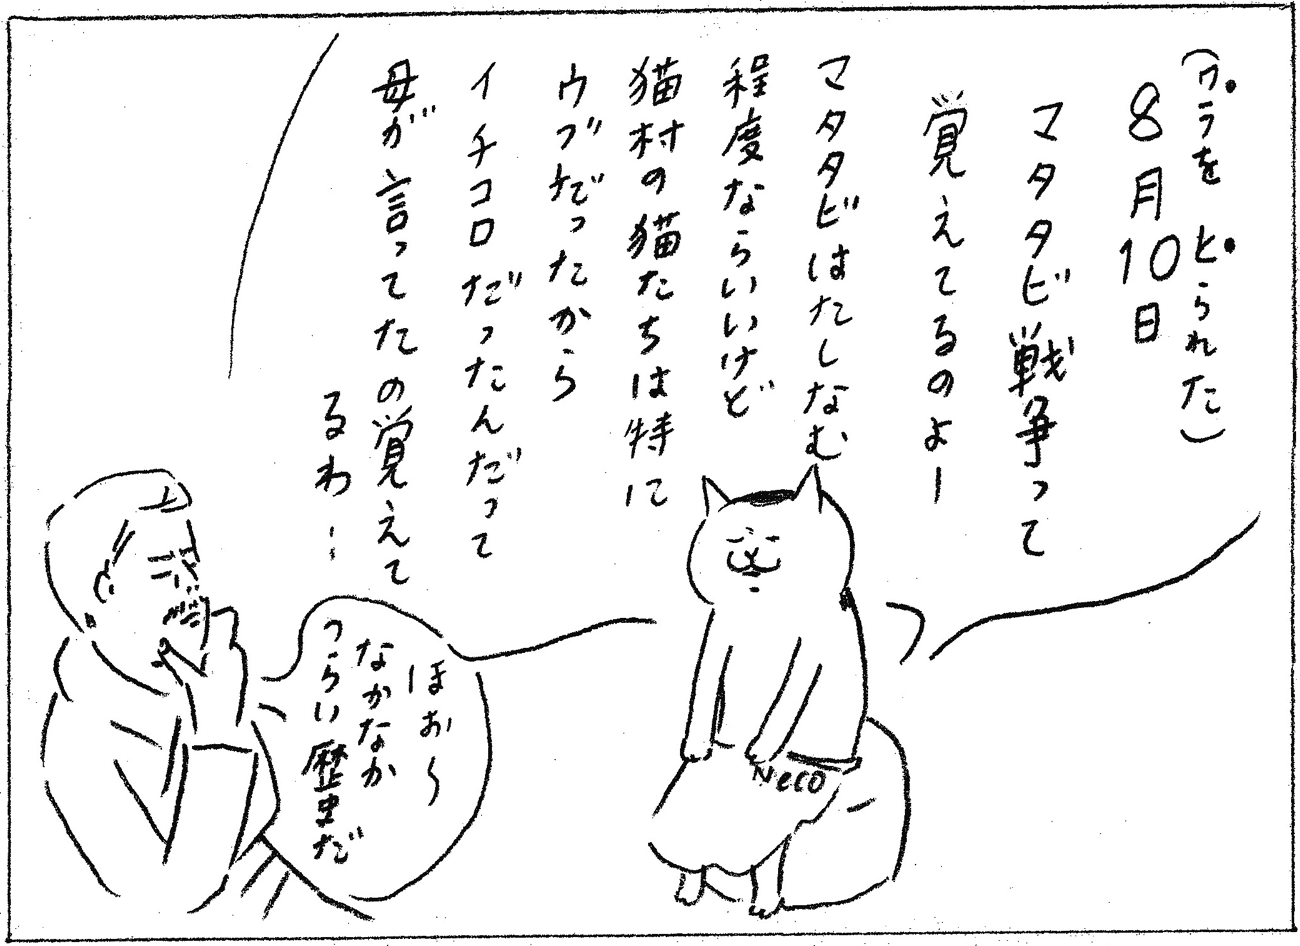 (ウラをとられた)
8月10日
マタタビ戦争って
覚えてるのよー
マタタビはたしなむ
程度ならいいけど
猫村の猫たちは特に
ウブだったから
イチコロだったんだって
母が言ってたの覚えて
るわー…
ほお〜
なかなか
つらい歴史だ
Neco